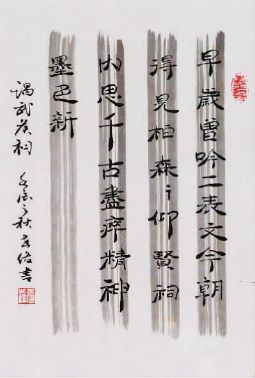 早歲曾吟二表文今朝
得見柏森〻仰賢祠
內思千古盡瘁精神
墨色新
謁武侯祠